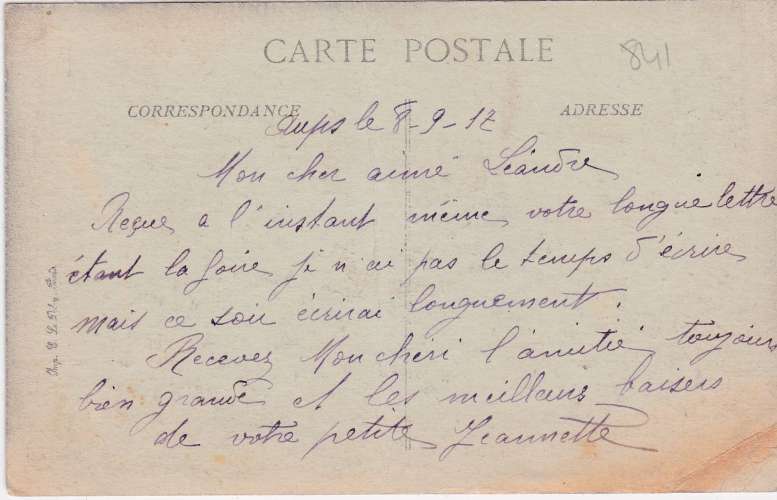 CARTE POSTALE
841
CORRESPONDANCE
ADRESSE
Aups le 8-9-17
Mon cher aimé Léandre
Reçue a l'instant même votre longue lettre
étant la foire je n'ai pas le temps d'écrire
mais ce soir écrirai longuement.
Recevez Mon chéri l'amitié toujours
bien grande et les meilleurs baisers
de votre petite Jeannette